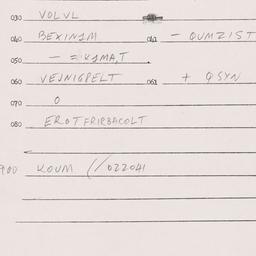 030 VOLVL
040 BEXINIM 041 - QUMZIST
050 - = KIMA,T
060 VEJNIGPELT 061 + QSYN
070 O
080 EROTFRIRBACOLT
900 KOUM (/022041